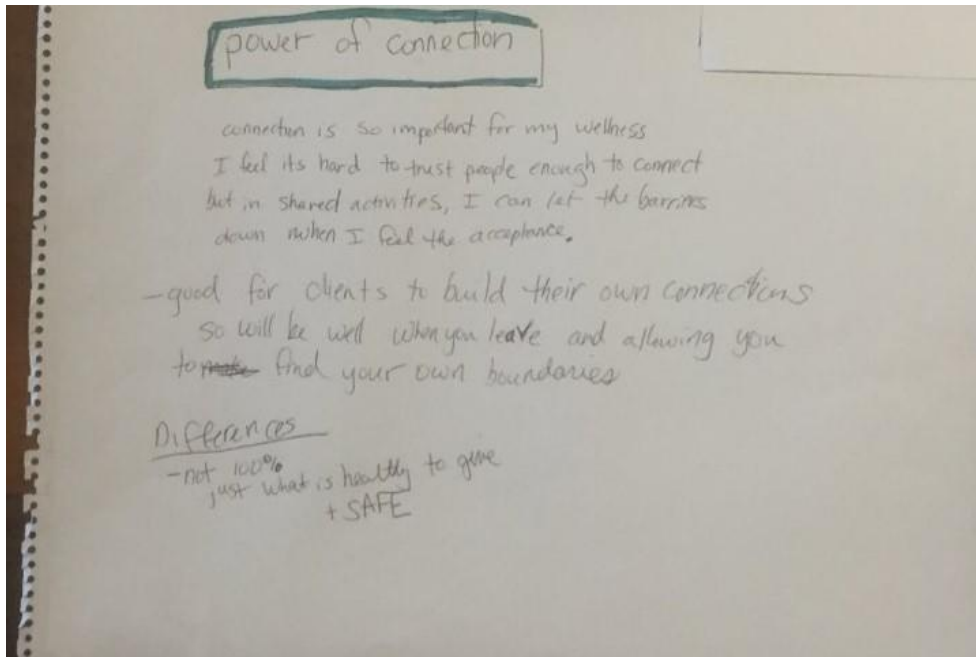 power of connection
connection is so important for my wellness
I feel its hard to trust people enough to connect
but in shared activities, I can let the barriers
down when I feel the acceptance.
- good for clients to build their own connections
so will be well when you leave and allowing you
to find your own boundaries
Differences
- not 100%
just what is healthy to give
+ SAFE